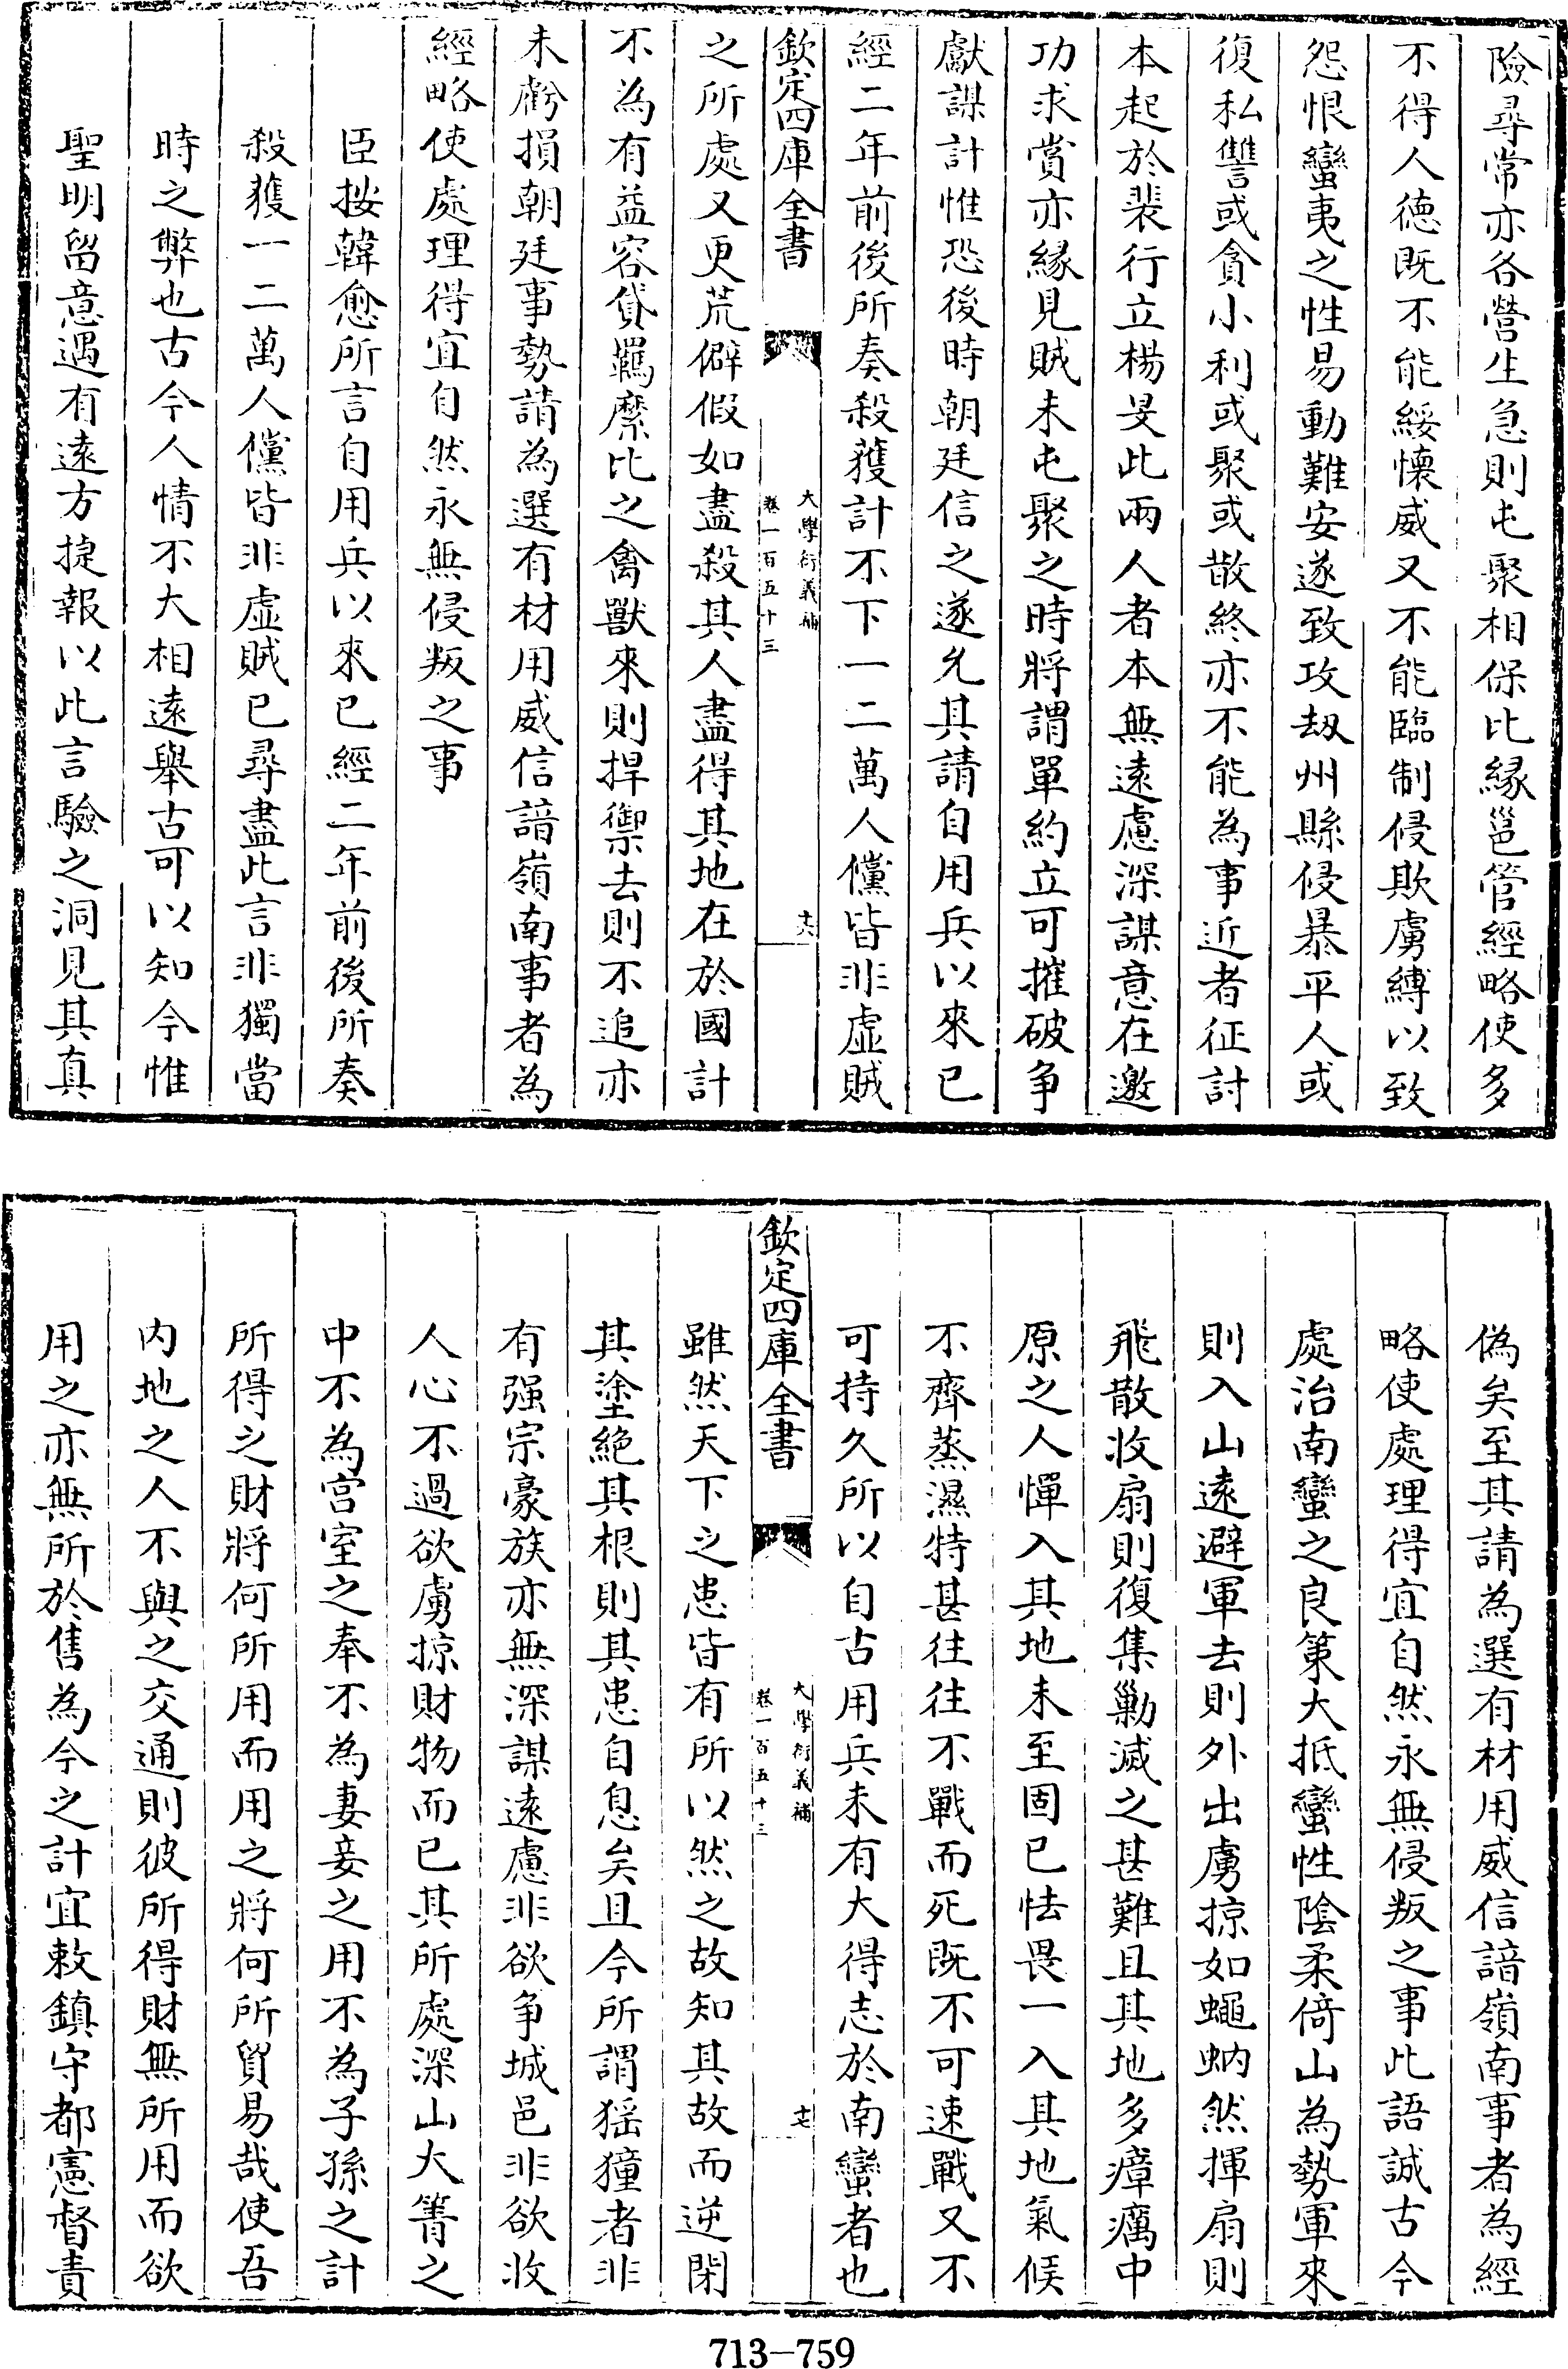 險尋常亦各營生急則屯聚相保比緣邕管經略使多
不得人德既不能綏懷威又不能臨制侵欺虜縛以致
怨恨蠻夷之性易動難安遂致攻刼州縣侵暴平人或
復私讐或貪小利或聚或散終亦不能為事近者征討
本起於裴行立楊旻此兩人者本無遠慮深謀意在邀
功求賞亦緣見賊未屯聚之時將謂單約立可摧破争
獻謀計惟恐後時朝廷信之遂允其請自用兵以來已
經二年前後所奏殺獲計不下一二萬人儻皆非虛賊
欽定四庫全書
大學衍義補
卷一百五十三
十六
之所處又更荒僻假如盡殺其人盡得其地在於國計
不為有益容貸羈縻比之禽獸來則捍禦去則不追亦
未虧損朝廷事勢請為選有材用威信諳嶺南事者為
經略使處理得宜自然永無侵叛之事
臣按韓愈所言自用兵以來已經二年前後所奏
殺獲一二萬人儻皆非虛賊已尋盡此言非獨當
時之弊也古今人情不大相遠舉古可以知今惟
聖明留意遇有遠方捷報以此言驗之洞見其真
偽矣至其請為選有材用威信諳嶺南事者為經
略使處理得宜自然永無侵叛之事此語誠古今
處治南蠻之良策大抵蠻性陰柔倚山為勢軍來
則入山遠避軍去則外出虜掠如蠅蚋然揮扇則
飛散收扇則復集勦滅之甚難且其地多瘴癘中
原之人憚入其地未至固已怯畏一入其地氣候
不齊蒸濕特甚往往不戰而死既不可速戰又不
可持久所以自古用兵未有大得志於南蠻者也
欽定四庫全書
大學衍義補
卷一百五十三
十七
雖然天下之患皆有所以然之故知其故而逆閉
其塗絕其根則其患自息矣且今所謂猺獞者非
有强宗豪族亦無深謀遠慮非欲争城邑非欲收
人心不過欲虜掠財物而已其所處深山大箐之
中不為宫室之奉不為妻妾之用不為子孫之計
所得之財將何所用而用之將何所貿易哉使吾
内地之人不與之交通則彼所得財無所用而欲
用之亦無所於售為今之計宜敕鎮守都憲督責
713-759